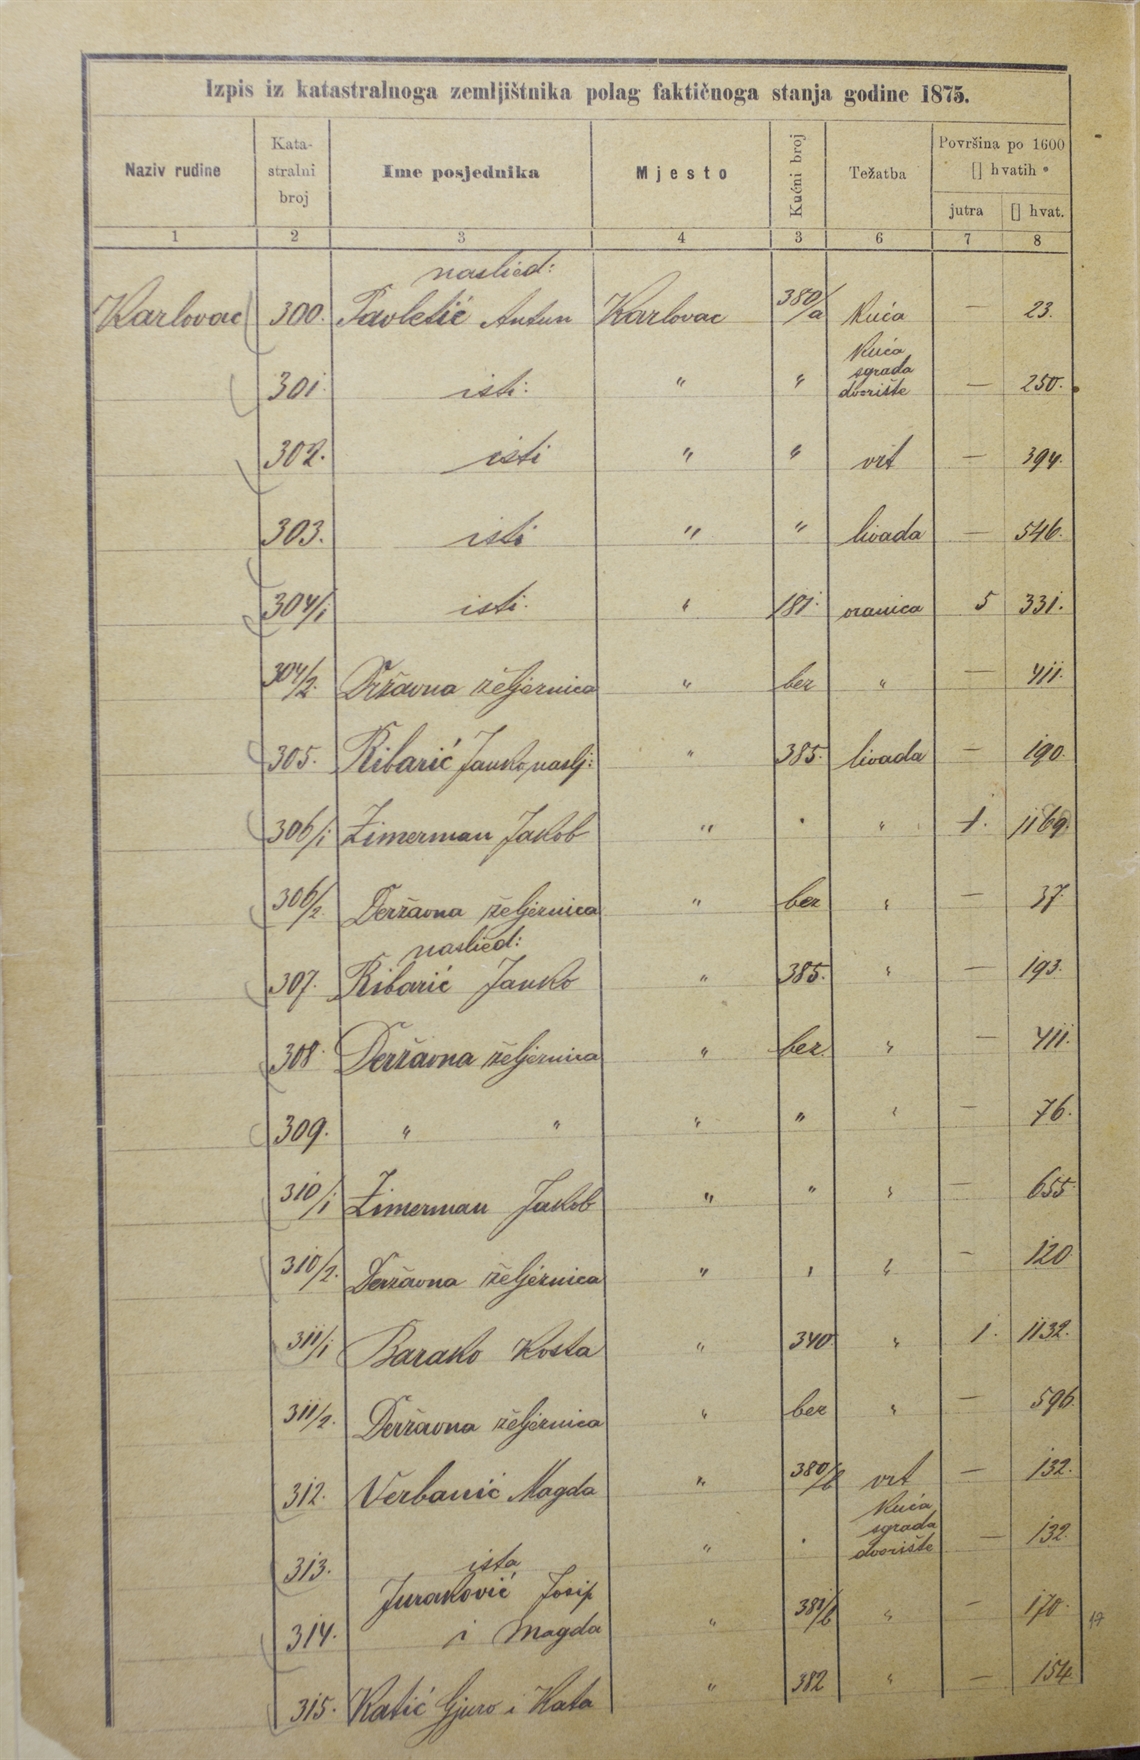 Izpis iz katastralnoga zemljištnika polag faktičnoga stanja godine 1875.
Naziv rudine Kata-stralni broj Ime posjednika Mjesto Kućni broj Težatba Površina po 1600 ▯ hvatih
jutra ▯ hvat.
1 2 3 4 3 6 7 8
naslied:
Karlovac 300. Pavletić Antun Karlovac 380/a Kuća — 23.
301. isti: " " Kuća sgrada dvorište — 250.
302. isti " " vrt — 394.
303. isti " " livada — 546.
304/1 isti " 181. oranica 5 331.
304/2. Državna željeznica " bez " — 411.
305. Ribarić Janko naslj: " 385. livada — 190.
306/1 Zimerman Jakob " " " 1. 1169.
306/2 Deržavna željeznica " bez " — 37.
naslied:
307. Ribarić Janko " 385. " — 193.
308. Deržavna željeznica " bez. " — 411.
309. " " " " " — 76.
310/1 Zimerman Jakob " " " — 655.
310/2. Deržavna željeznica " " " — 120.
311/1 Barako Kosta " 340. " 1. 1132.
311/2. Deržavna željeznica " bez " — 596.
312. Verbanić Magda " 380/b vrt — 132.
313. ista " " Kuća sgrada dvorište — 132.
Juraković Josip
314. i Magda " 381/b " — 170. 17
315. Katić Gjuro i Kata " 382 " — 154.